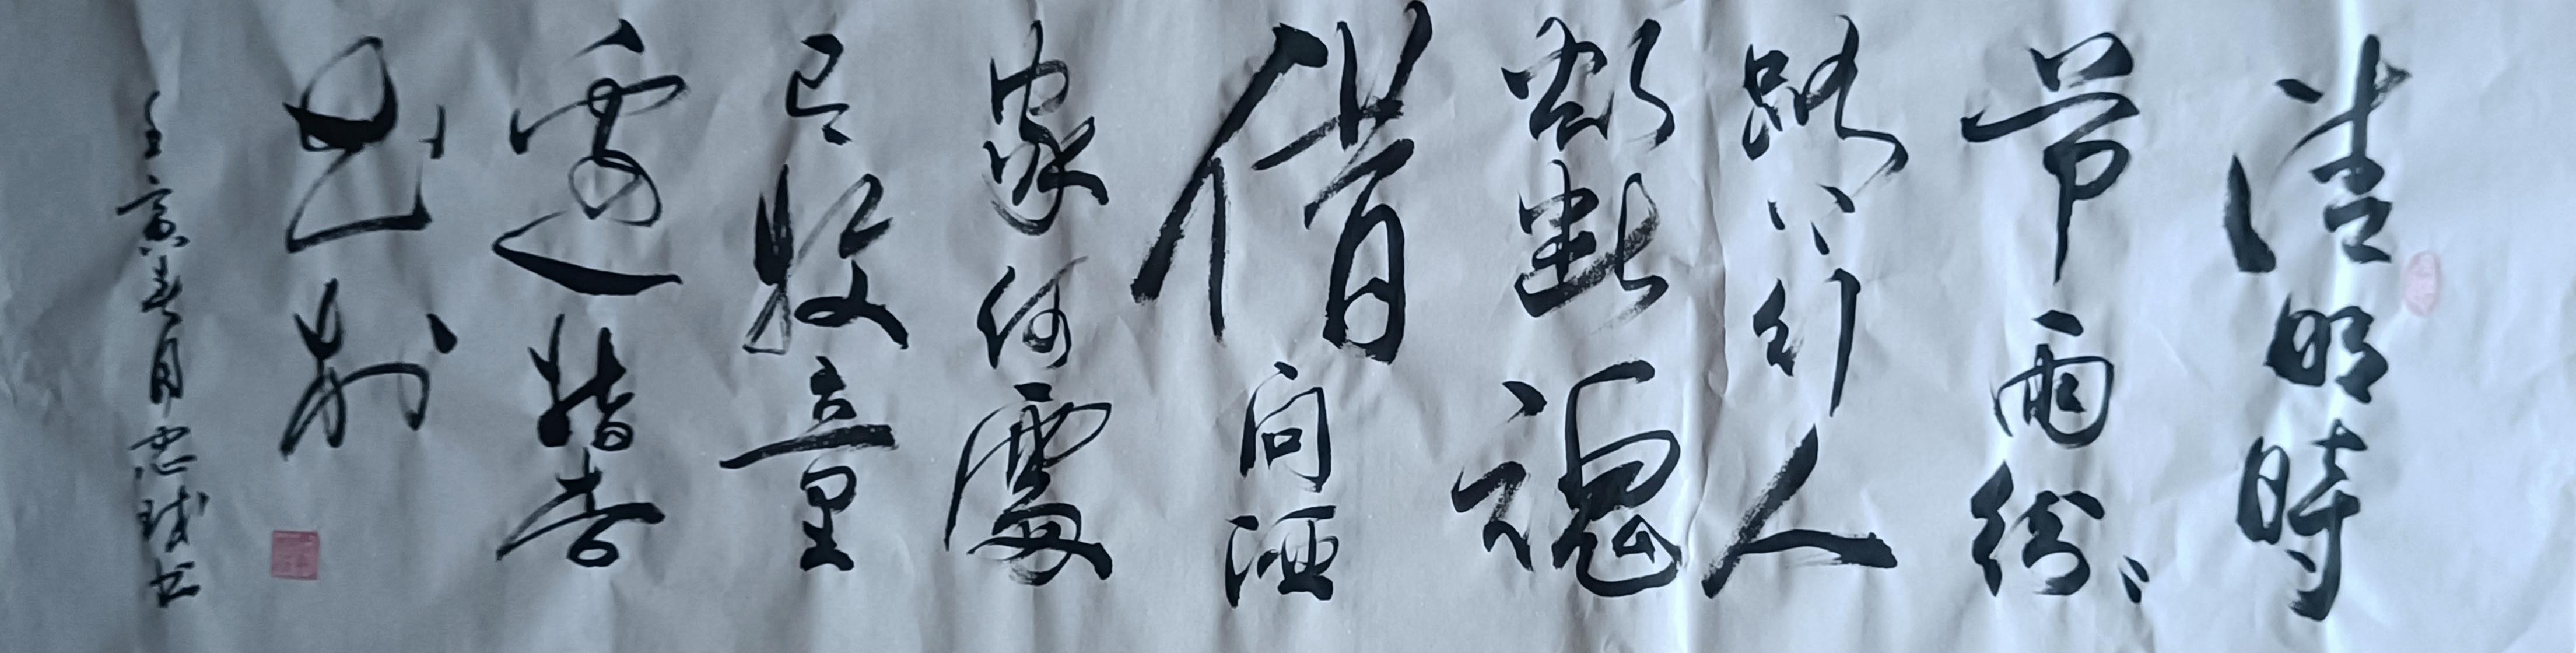 清明時
节雨紛、
路上行人
欲斷魂
借问酒
家何處
有牧童
遥指杏
花村
壬寅春月忠球书